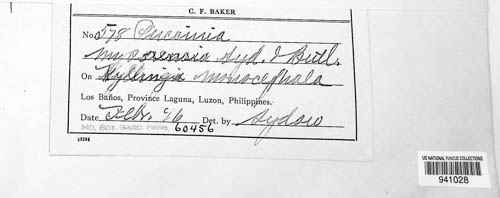 C. F. BAKER
No. 578 Puccinia
mysorensis Syd. & Butl.
On Kyllingia monocephala
Los Baños, Province Laguna, Luzon, Philippines.
Date Febr. '16 Det. by Sydow
MO. BOT. GARD HERB. 60456
US NATIONAL FUNGUS COLLECTIONS
941028